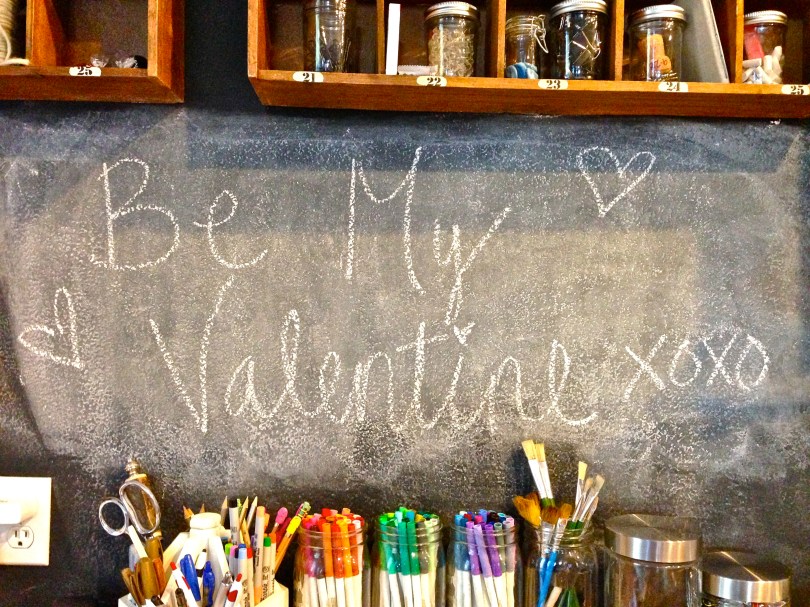 25 21 22 23 24 25
Be My
Valentine xoxo